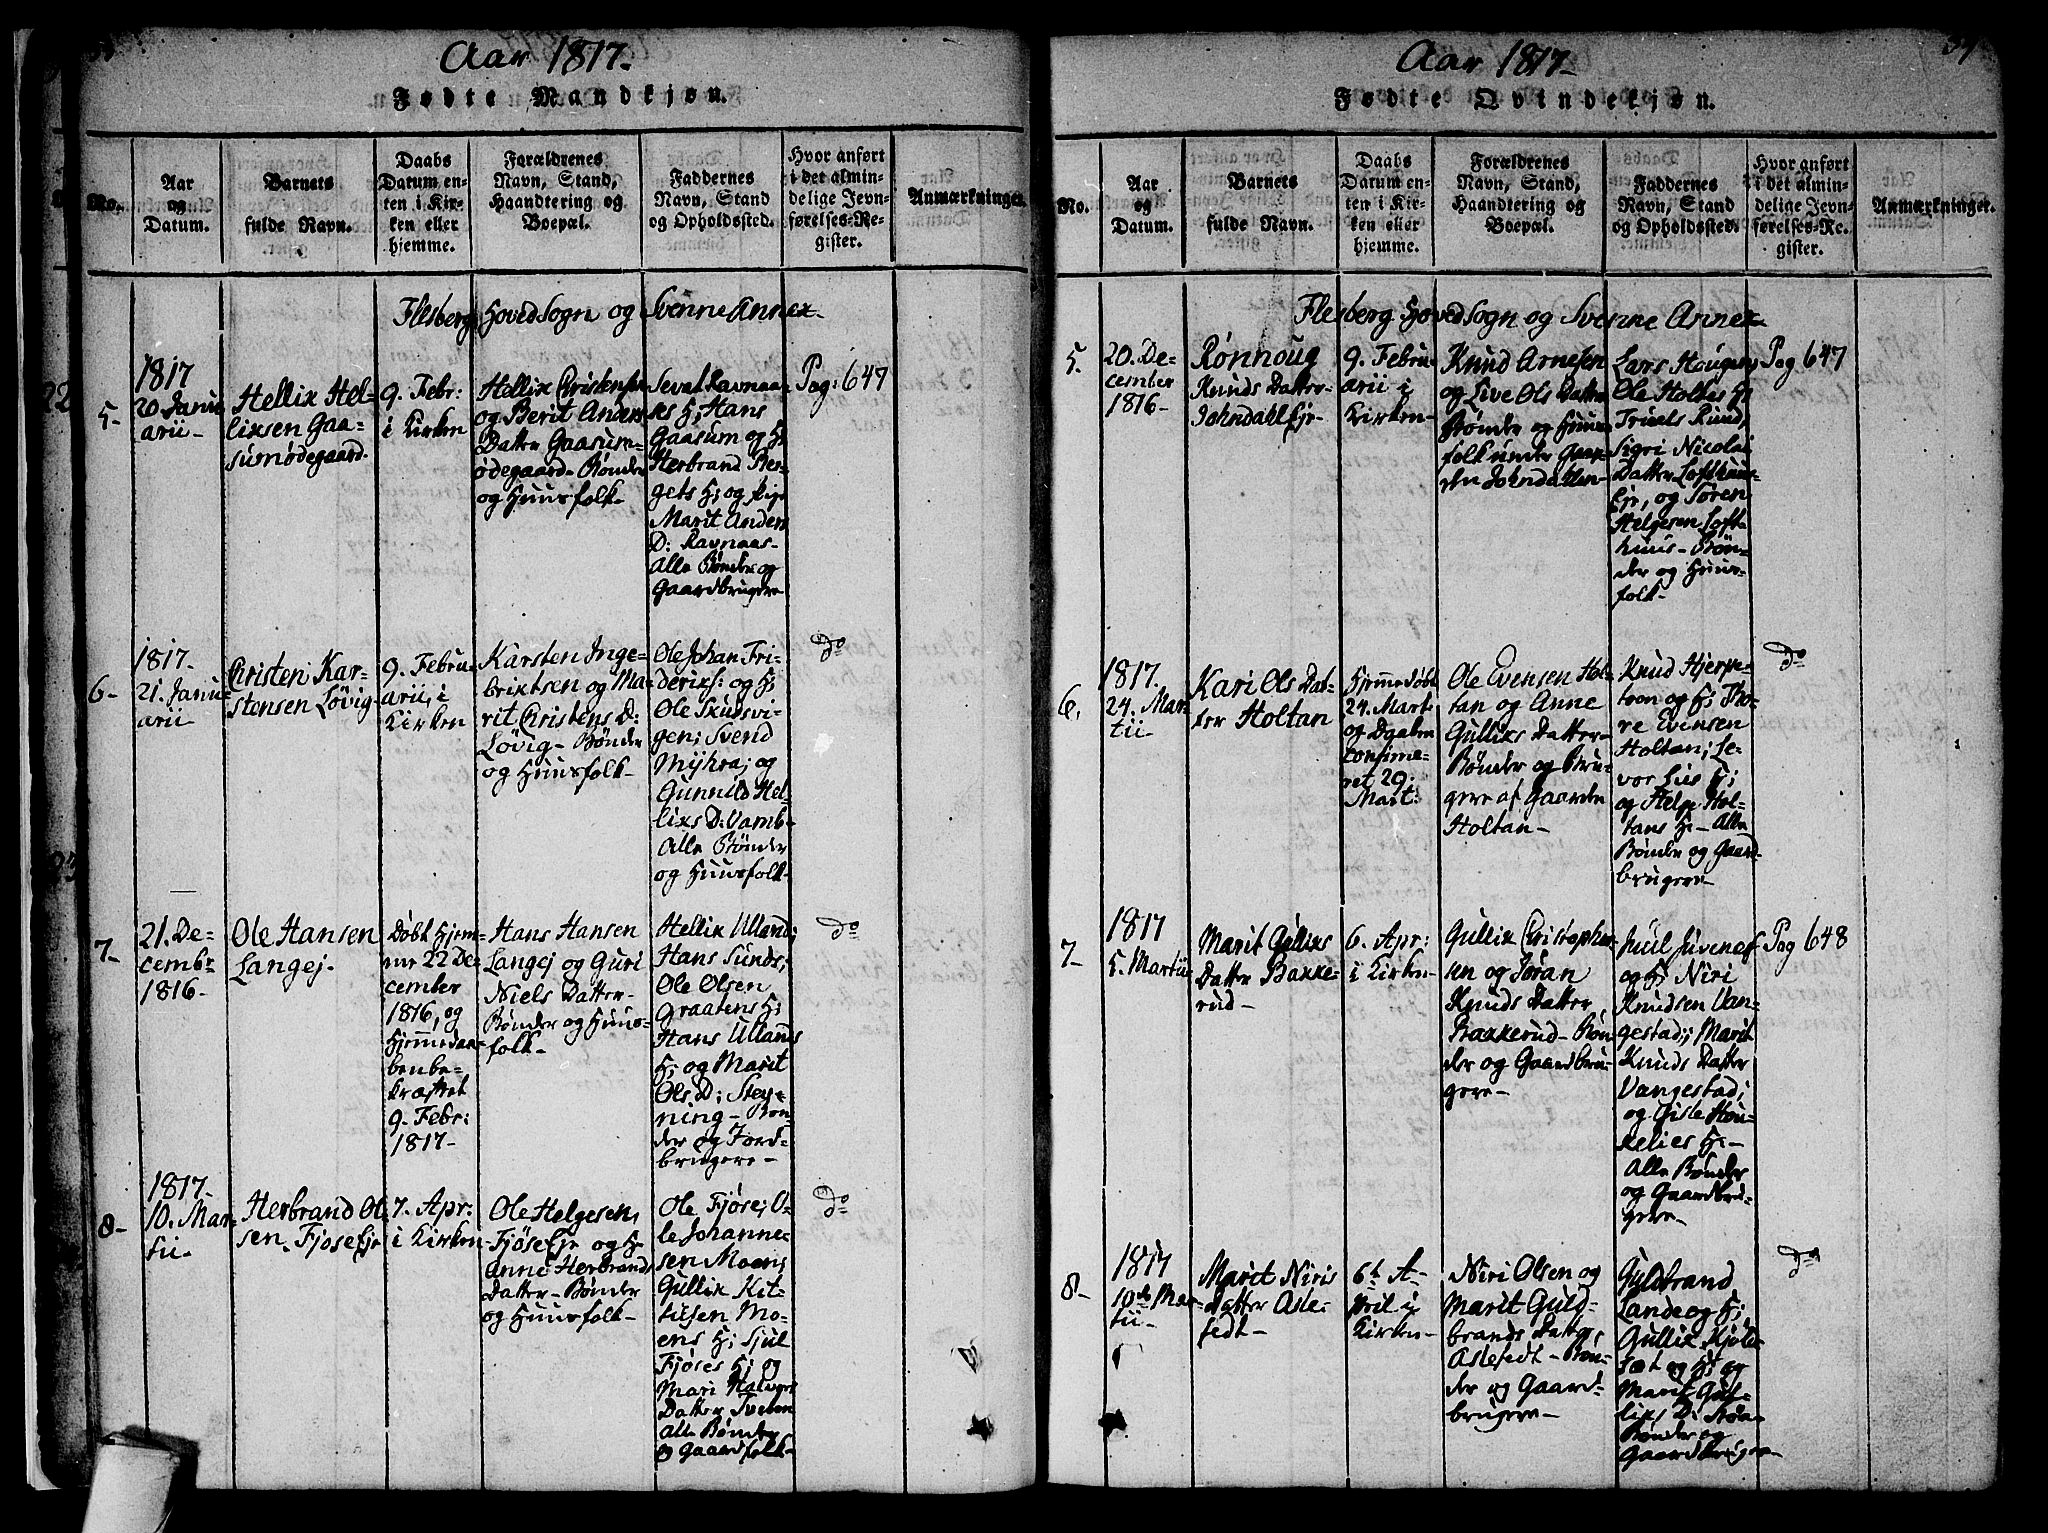 Aar 1817.
Fødte Mandkjøn.
No.
Aar
og
Datum.
Barnets
fulde Navn.
Daabs
Datum en-
ten i Kir-
ken eller
hjemme.
Forældrenes
Navn, Stand,
Haandtering og
Boepæl.
Faddernes
Navn, Stand
og Opholdssted.
Hvor anført
i det almin-
delige Jevn-
førelses-Re-
gister.
Anmærkninger.
Flesberg Hoved Sogn og Svenne Annex.
5-
1817
20 Janu
arii-
Hellix Hel-
lixsen Gaa-
sumødegaard.
9. Febr:
i Kirken
Hellix Christensen
og Berit Anders
Datter Gaasum-
ødegaard- Bønder
og Huusfolk-
Sevat Ravnaa-
ses H; Hans
Gaasum og H;
Herbrand Ber-
gets H; og Pige
Marit Anders
D: Ravnaas-
Alle Bønder og
Gaardbrugere
Pag: 647
6-
1817-
21. Janu-
arii
Christen Kar-
stensen Løvig-
9. Febru-
arii, i
Kirken
Karsten Inge-
brixtsen og Ma-
rit Christens D:
Løvig- Bønder
og Huusfolk-
Ole Johan Fri-
derixs: og H;
Ole Skudsvi-
gen; Svend
Myhra; og
Gunnild Hel-
lixs D: Vamb-
Alle Bønder
og Huusfolk-
do
7-
21. De-
cembr
1816-
Ole Hansen
Langej-
Døbt Hjem-
me 22 De-
cember
1816, og
Hjemmedaa-
ben be-
kræftet
9. Febr:
1817-
Hans Hansen
Langej og Guri
Niels Datter-
Bønder og Huus-
folk-
Hellix Ulland;
Hans Sunds;
Ole Olsen
Graatens H;
Hans Ullands
H; og Marit
Ols D: Stey-
ning- Bøn-
der og Jord-
brugere-
do
8-
1817-
10. Mar-
tii-
Herbrand Ol-
sen Fjøse Eje
7. Apr:
i Kirken
Ole Helgesen,
Fjøse Eje og H;
Anne Herbrands
Datter- Bønder
og Huusfolk-
Ole Fjøse; O-
le Johanne-
sen Moen;
Gullix Kit-
tilsen Mo-
ens H; Sjul
Fjøses H; og
Mari Halvors
Datter Sveben
Alle Bønder
og Gaardfolk-
do
Aar 1817-
Fødte Qvindekjøn.
No.
Aar
og
Datum.
Barnets
fulde Navn.
Daabs
Datum en-
ten i Kir-
ken eller
hjemme.
Forældrenes
Navn, Stand,
Haandtering og
Boepæl.
Faddernes
Navn, Stand
og Opholdssted.
Hvor anført
i det almin-
delige Jevn-
førelses-Re-
gister.
Anmærkninger.
Flesberg Hoved Sogn og Svenne Annex
5.
20. De-
cember
1816-
Rønnoug
Knuds Datter
Johndahl Eje-
9. Febru-
arii i
Kirken-
Knud Arnesen
og Live Ols Datter
Bønder og Huus
folk under Gaar-
den Johndahlen-
Lars Hougen;
Ole Holtes H;
Truels Ruud,
Sigri Nicolai
Datter Lofthuus
Eje, og Søren
Helgesen Loft-
huus- Bøn-
der og Huus-
folk-
Pag 647
6.
1817.
24. Mar-
tii-
Kari Ols Dat-
ter Holtan
Hjemmedøbt
24. Mart
og Daaben
confirme-
ret 29.
Mart:
Ole Evensen Hol-
tan og Anne
Gullixs Datter-
Bønder og Bru-
gere af Gaarden
Holtan-
Knud Hjerpe-
toon og H; Tho-
re Evensen
Holtan; Le-
vor Lies H;
og Helge Hol-
tans H- Alle
Bønder og Gaard-
brugere-
do
7-
1817
5. Martii
Marit Gullixs
Datter Bakke-
rud-
6. Apr:
i Kirken-
Gullix Christopher-
sen og Jøran
Knuds Datter,
Bakkerud- Bøn-
der og Gaardbru-
gere-
Juul Juvenes
og H; Niri
Knudsen Van-
gestad; Marit
Knuds Datter
Vangestad;
og Gisle
H-
Alle Bønder
og Gaardbru-
gere-
Pag 648
8-
1817
10de Mar-
tii-
Marit Niris
Datter Asle-
fedt-
6te A-
pril i
Kirken-
Niri Olsen og
Marit Guld-
brands Datter,
Aslefedt- Bøn-
der og Gaard-
brugere-
Guldbrand
Lande og H;
Gullix Kjøle-
sæt og H; og
Marit Gul-
lixs D:
Bønder og
Gaardbrugere-
do